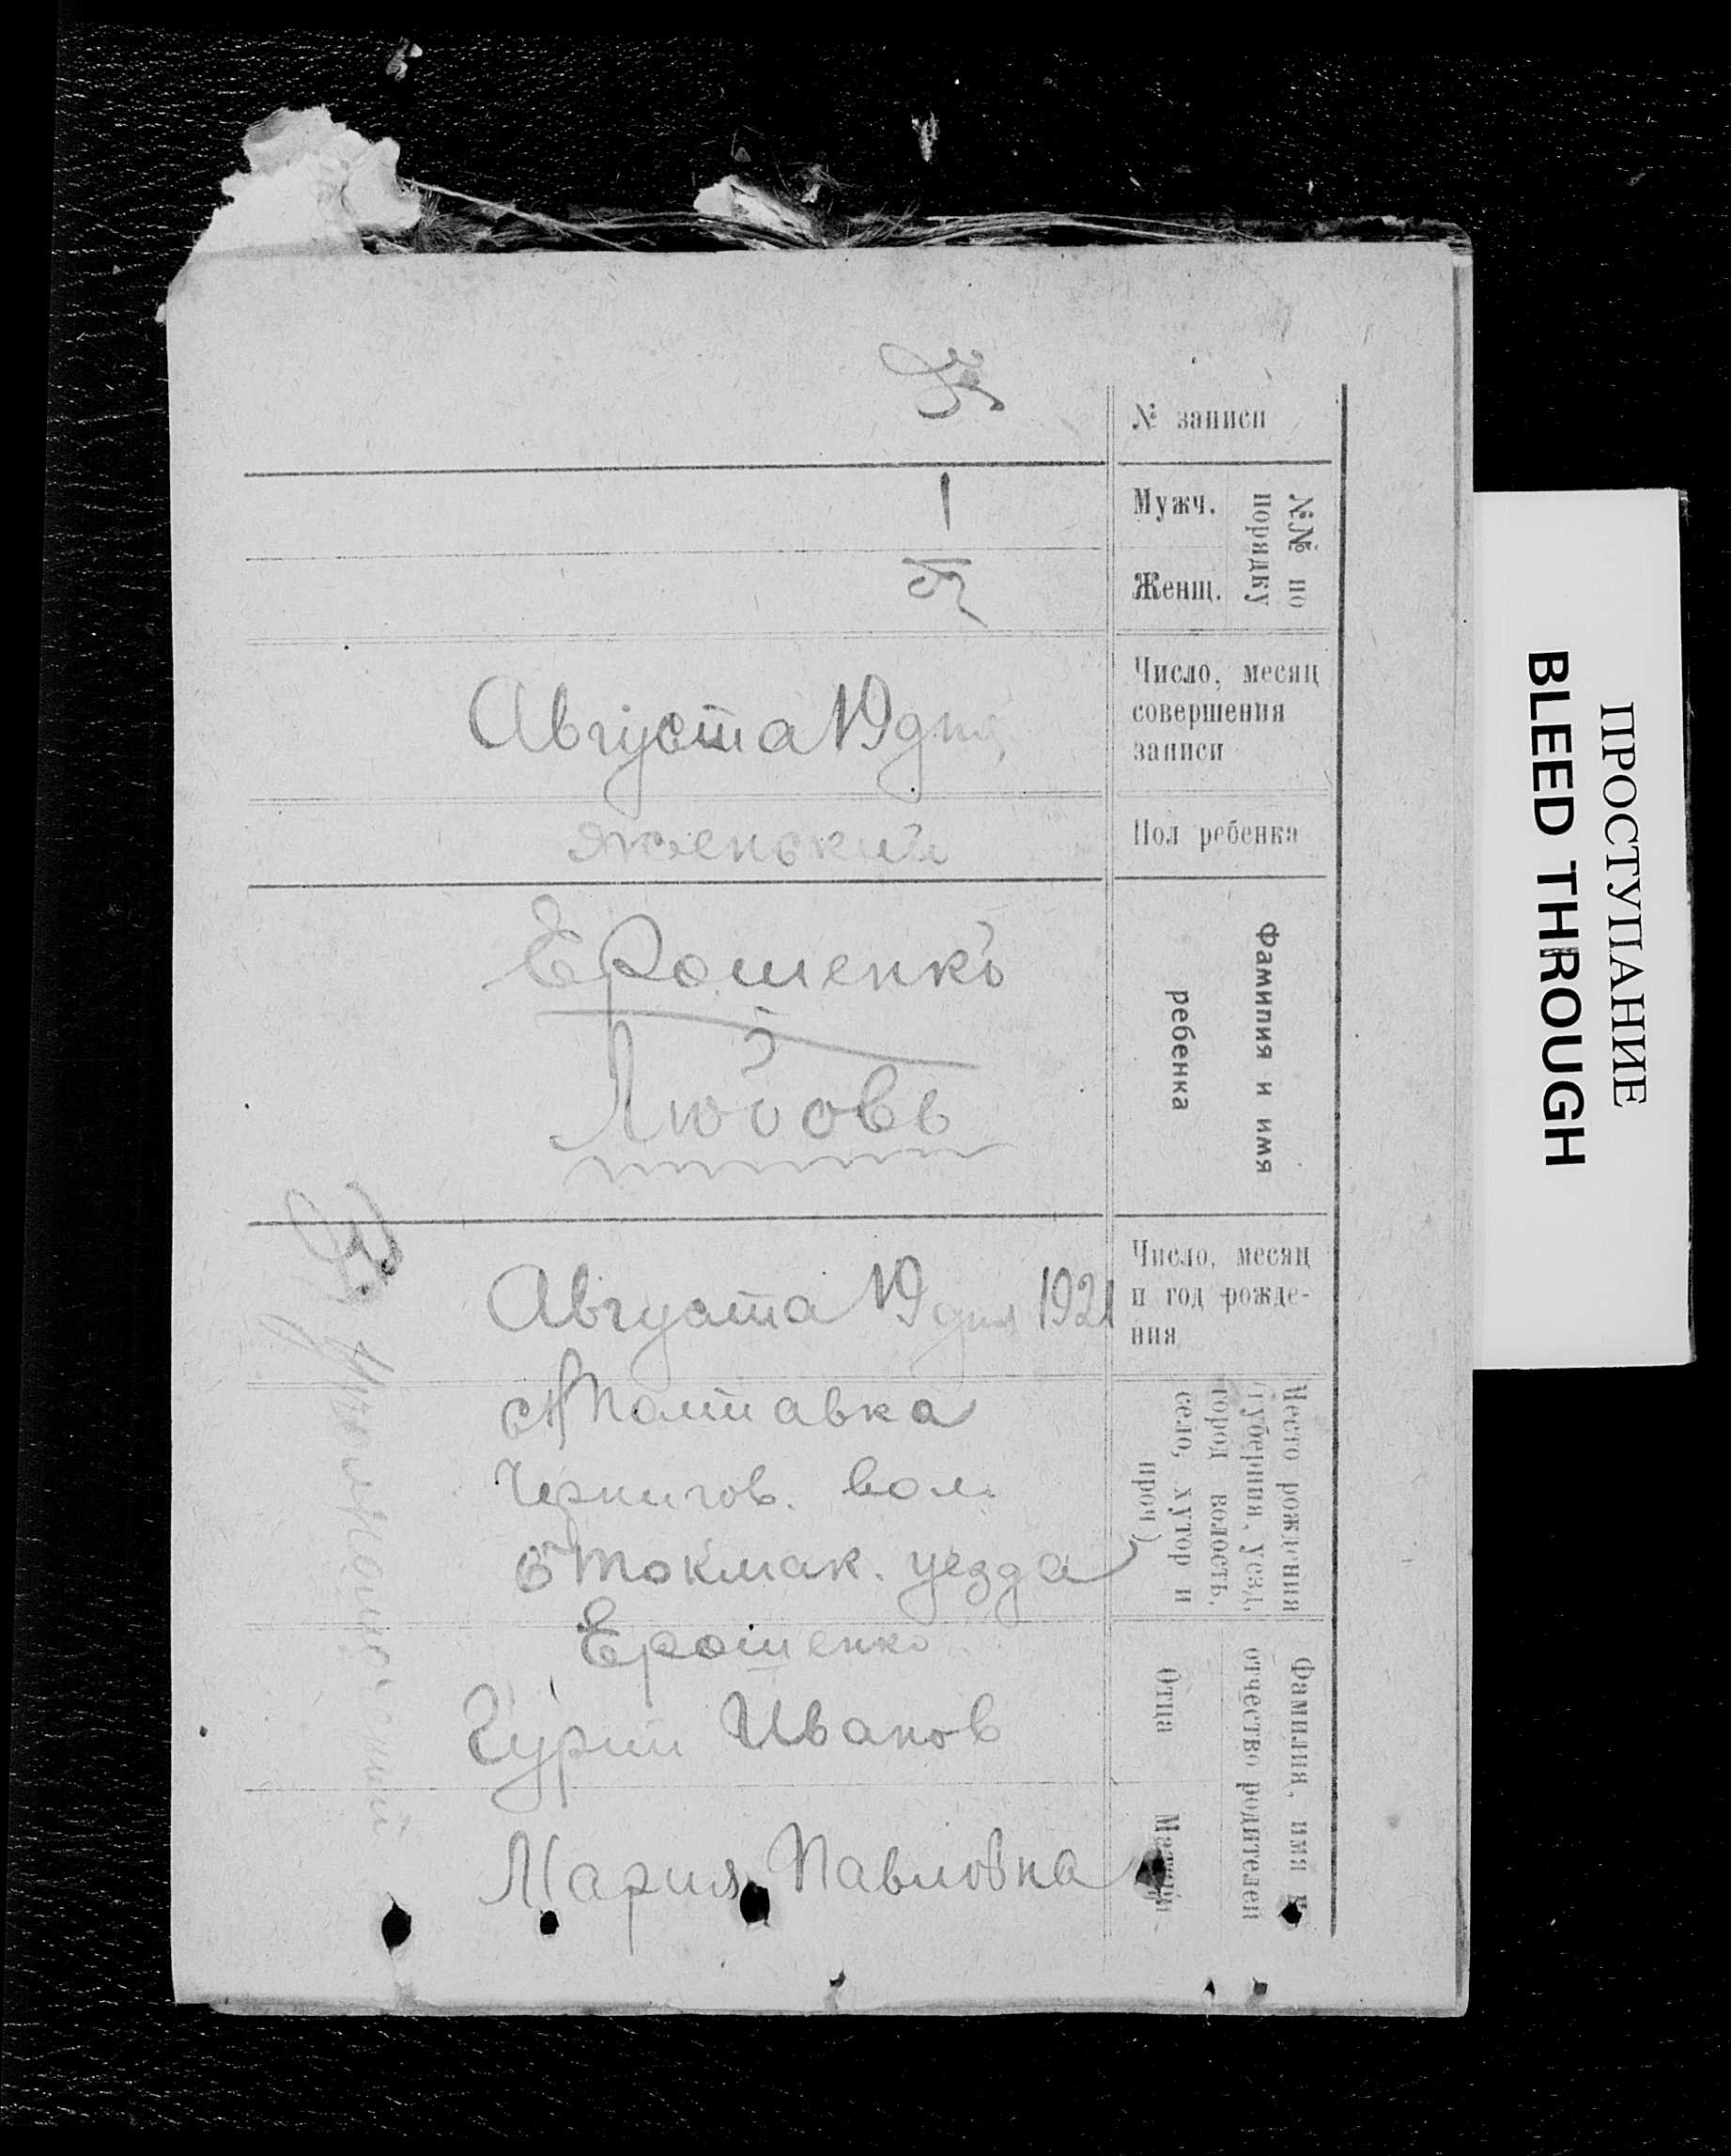 № записи
№№ по
порядку
Мужч.
1
Женщ.
Число, месяц
совершения
записи
Августа 19 дня
Пол ребенка
женский
Фамилия и имя
ребенка
Ерошенко
Любовь
Число, месяц
и год рожде-
ния
Августа 19 дня 1921
Место рождения
(губерния, уезд,
город волость,
село, хутор и
проч)
Полтавка
Чернигов. вол.
Б Токмак. уезда
Фамилия, имя и
отчество родителей
Отца
Ерошенко
Гурий Иванов
Матери
Мария Павловна
ПРОСТУПАНИЕ
BLEED THROUGH